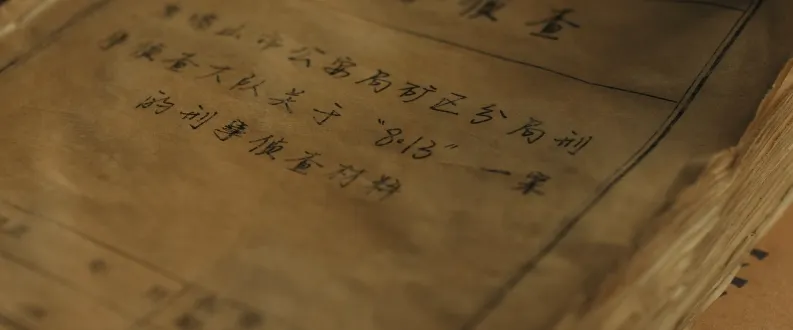 侦查
山市公安局矿区分局刑
事侦查大队关于“8·13”一案
的刑事侦查材料